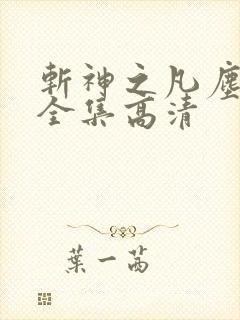 斬神之凡塵
全集高清
葉一茜